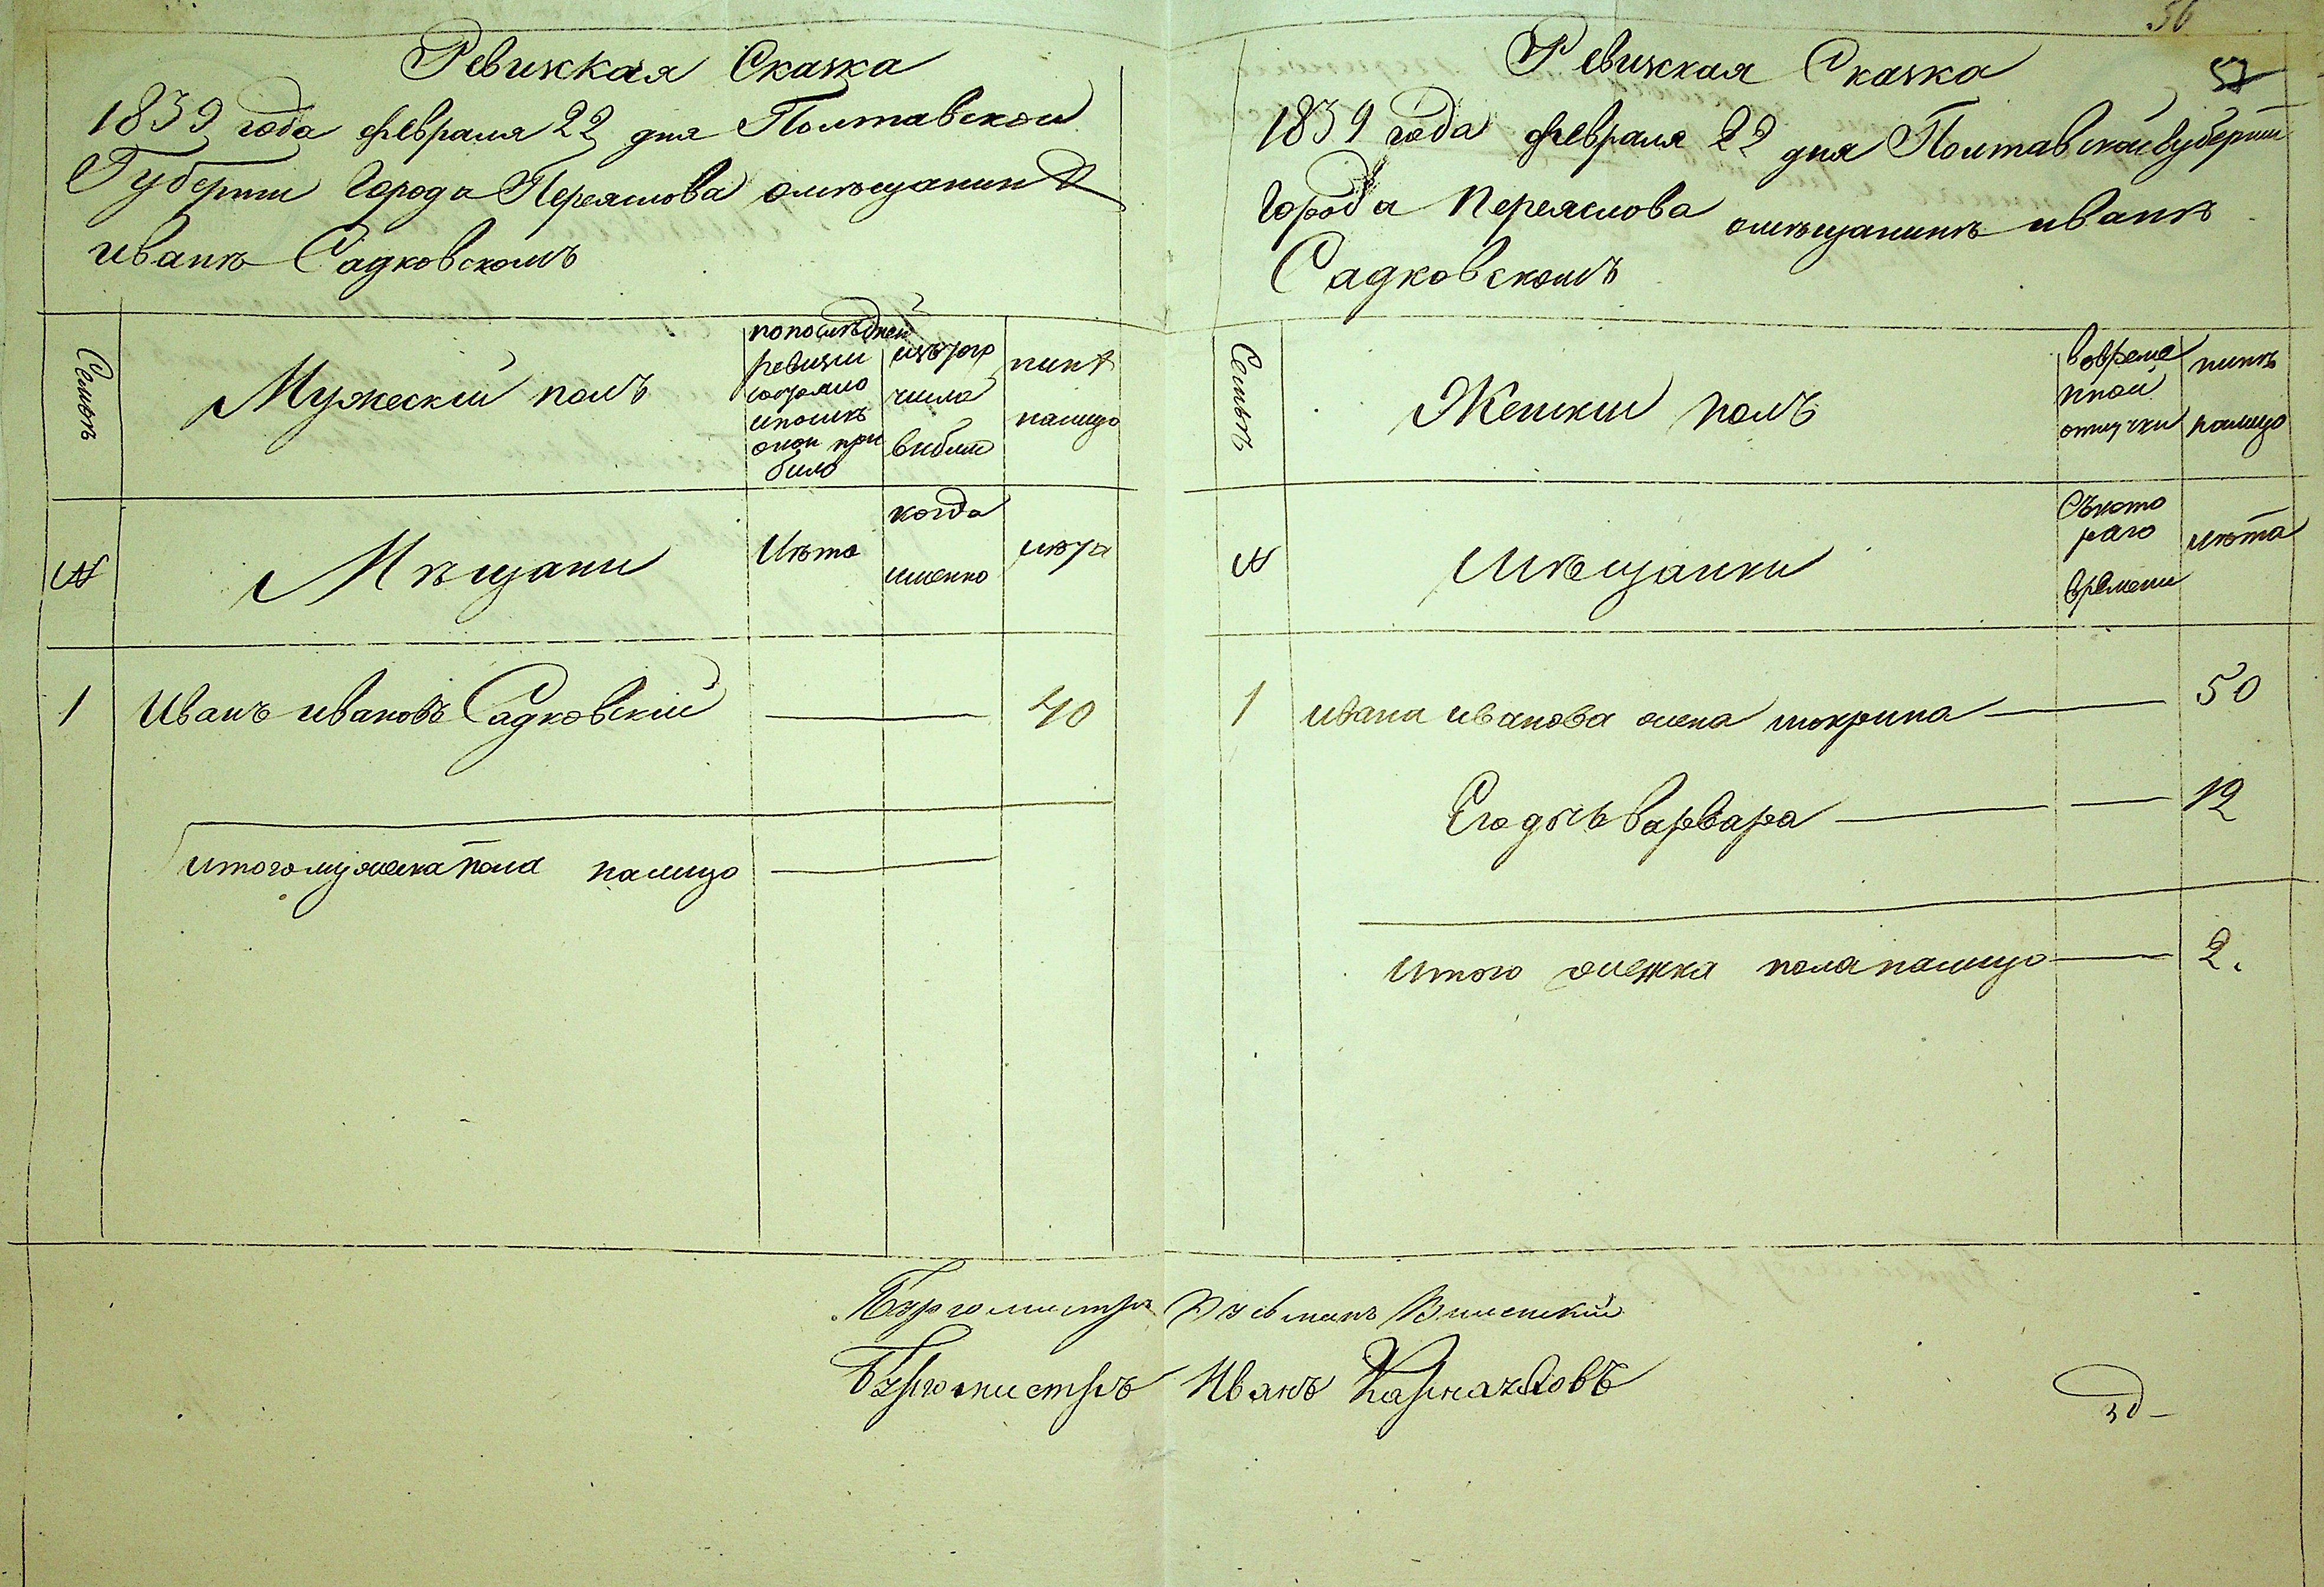 Ревижкая Сказка
1839 года февраля 22 дня Полтавскои
Губернии Города Переяслова омѣщанинѣ
иванѣ Садковскомъ
Семьѣ
Мужескій полъ
попослѣдней
ревизіи
состояло
ипослѣ
онои при
било
изътого
числа
вибыло
нинѣ
налицо
№
Мѣщани
Лѣта
когда
именно
лѣта
1 Иванъ ивановъ Садковскій 40
итого мужеска пола налицо
56
57
Ревижкая Сказка
1839 года февраля 22 дня Полтавскойгуберніи
города Переяслова омѣщанинѣ иванѣ
Садковскомъ
Семьѣ
Женскии полъ
вовреме
нной
отлучки
нинѣ
налицо
№
Мѣщанки
Съкото
раго
времени
лѣта
1 ивана иванова жена мокрина 50
Его дочь варвара 12
итого женска пола налицо 2.
Бургомистръ
Бургомистръ Иванъ